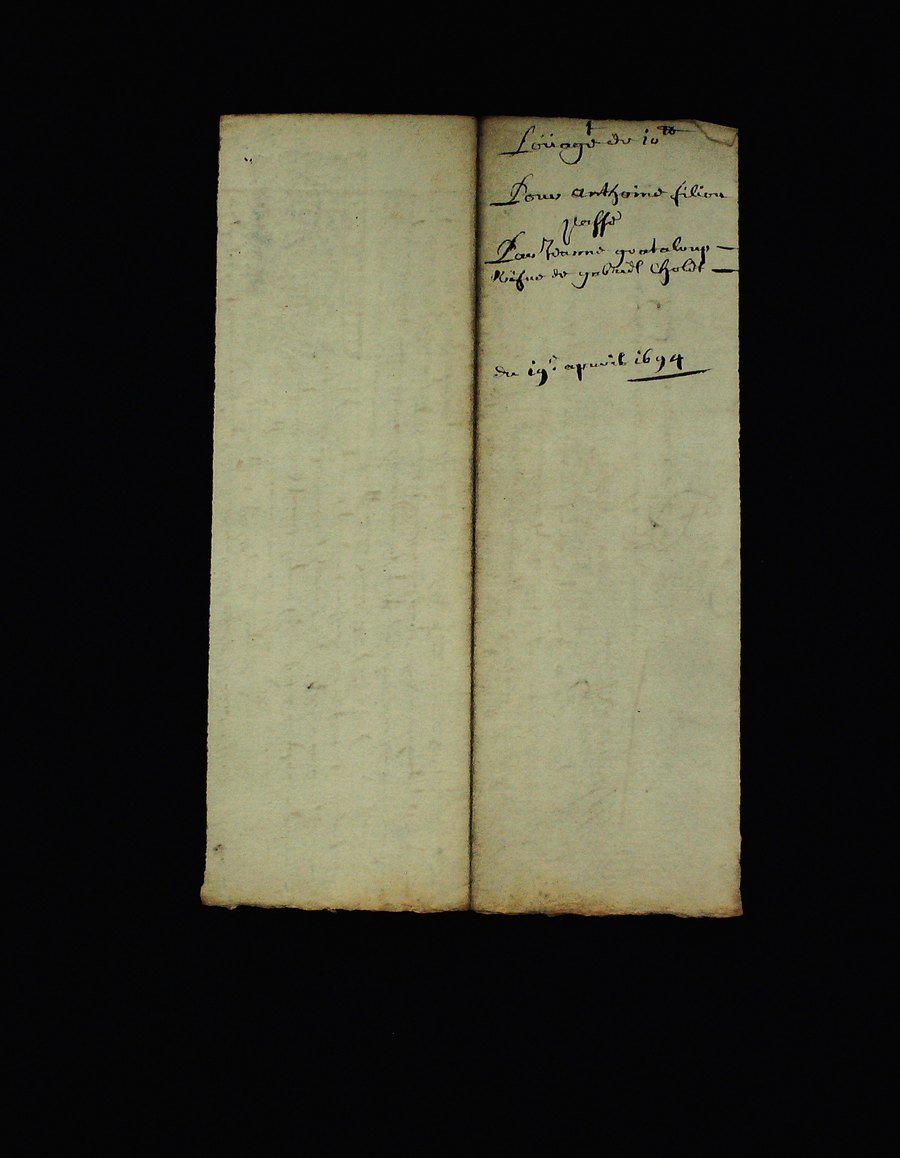 Loüage de 10tt
Pour anthoine filion
passé
Par Jeanne grataloup
Vefue de gabriel Cholet
du 19e apvril 1694